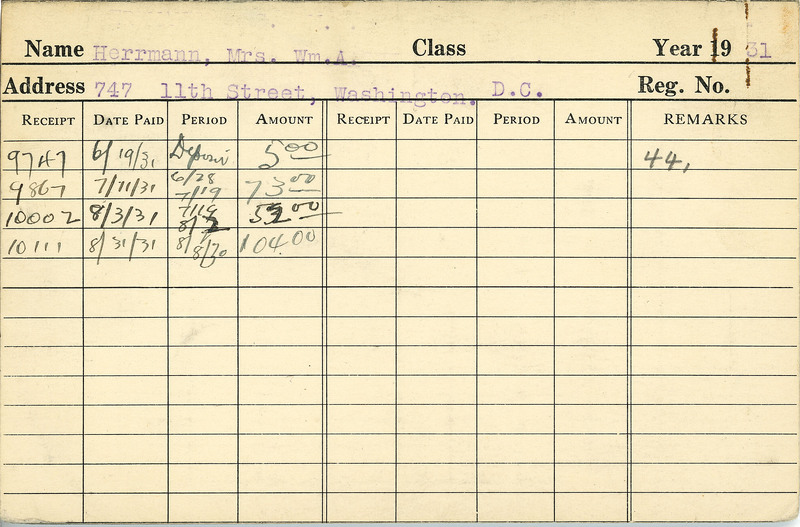 Name Herrmann, Mrs. Wm.A. Class Year 1931
Address 747 11th Street, Washington. D.C. Reg. No.
RECEIPT DATE PAID PERIOD AMOUNT RECEIPT DATE PAID PERIOD AMOUNT REMARKS
9747 6/19/31 Deposit 5 00 44,
9867 7/11/31 6/28 7/19 73 00
10002 8/3/31 7/19 8/2 52 00
10111 8/31/31 8/2 8/30 104.00